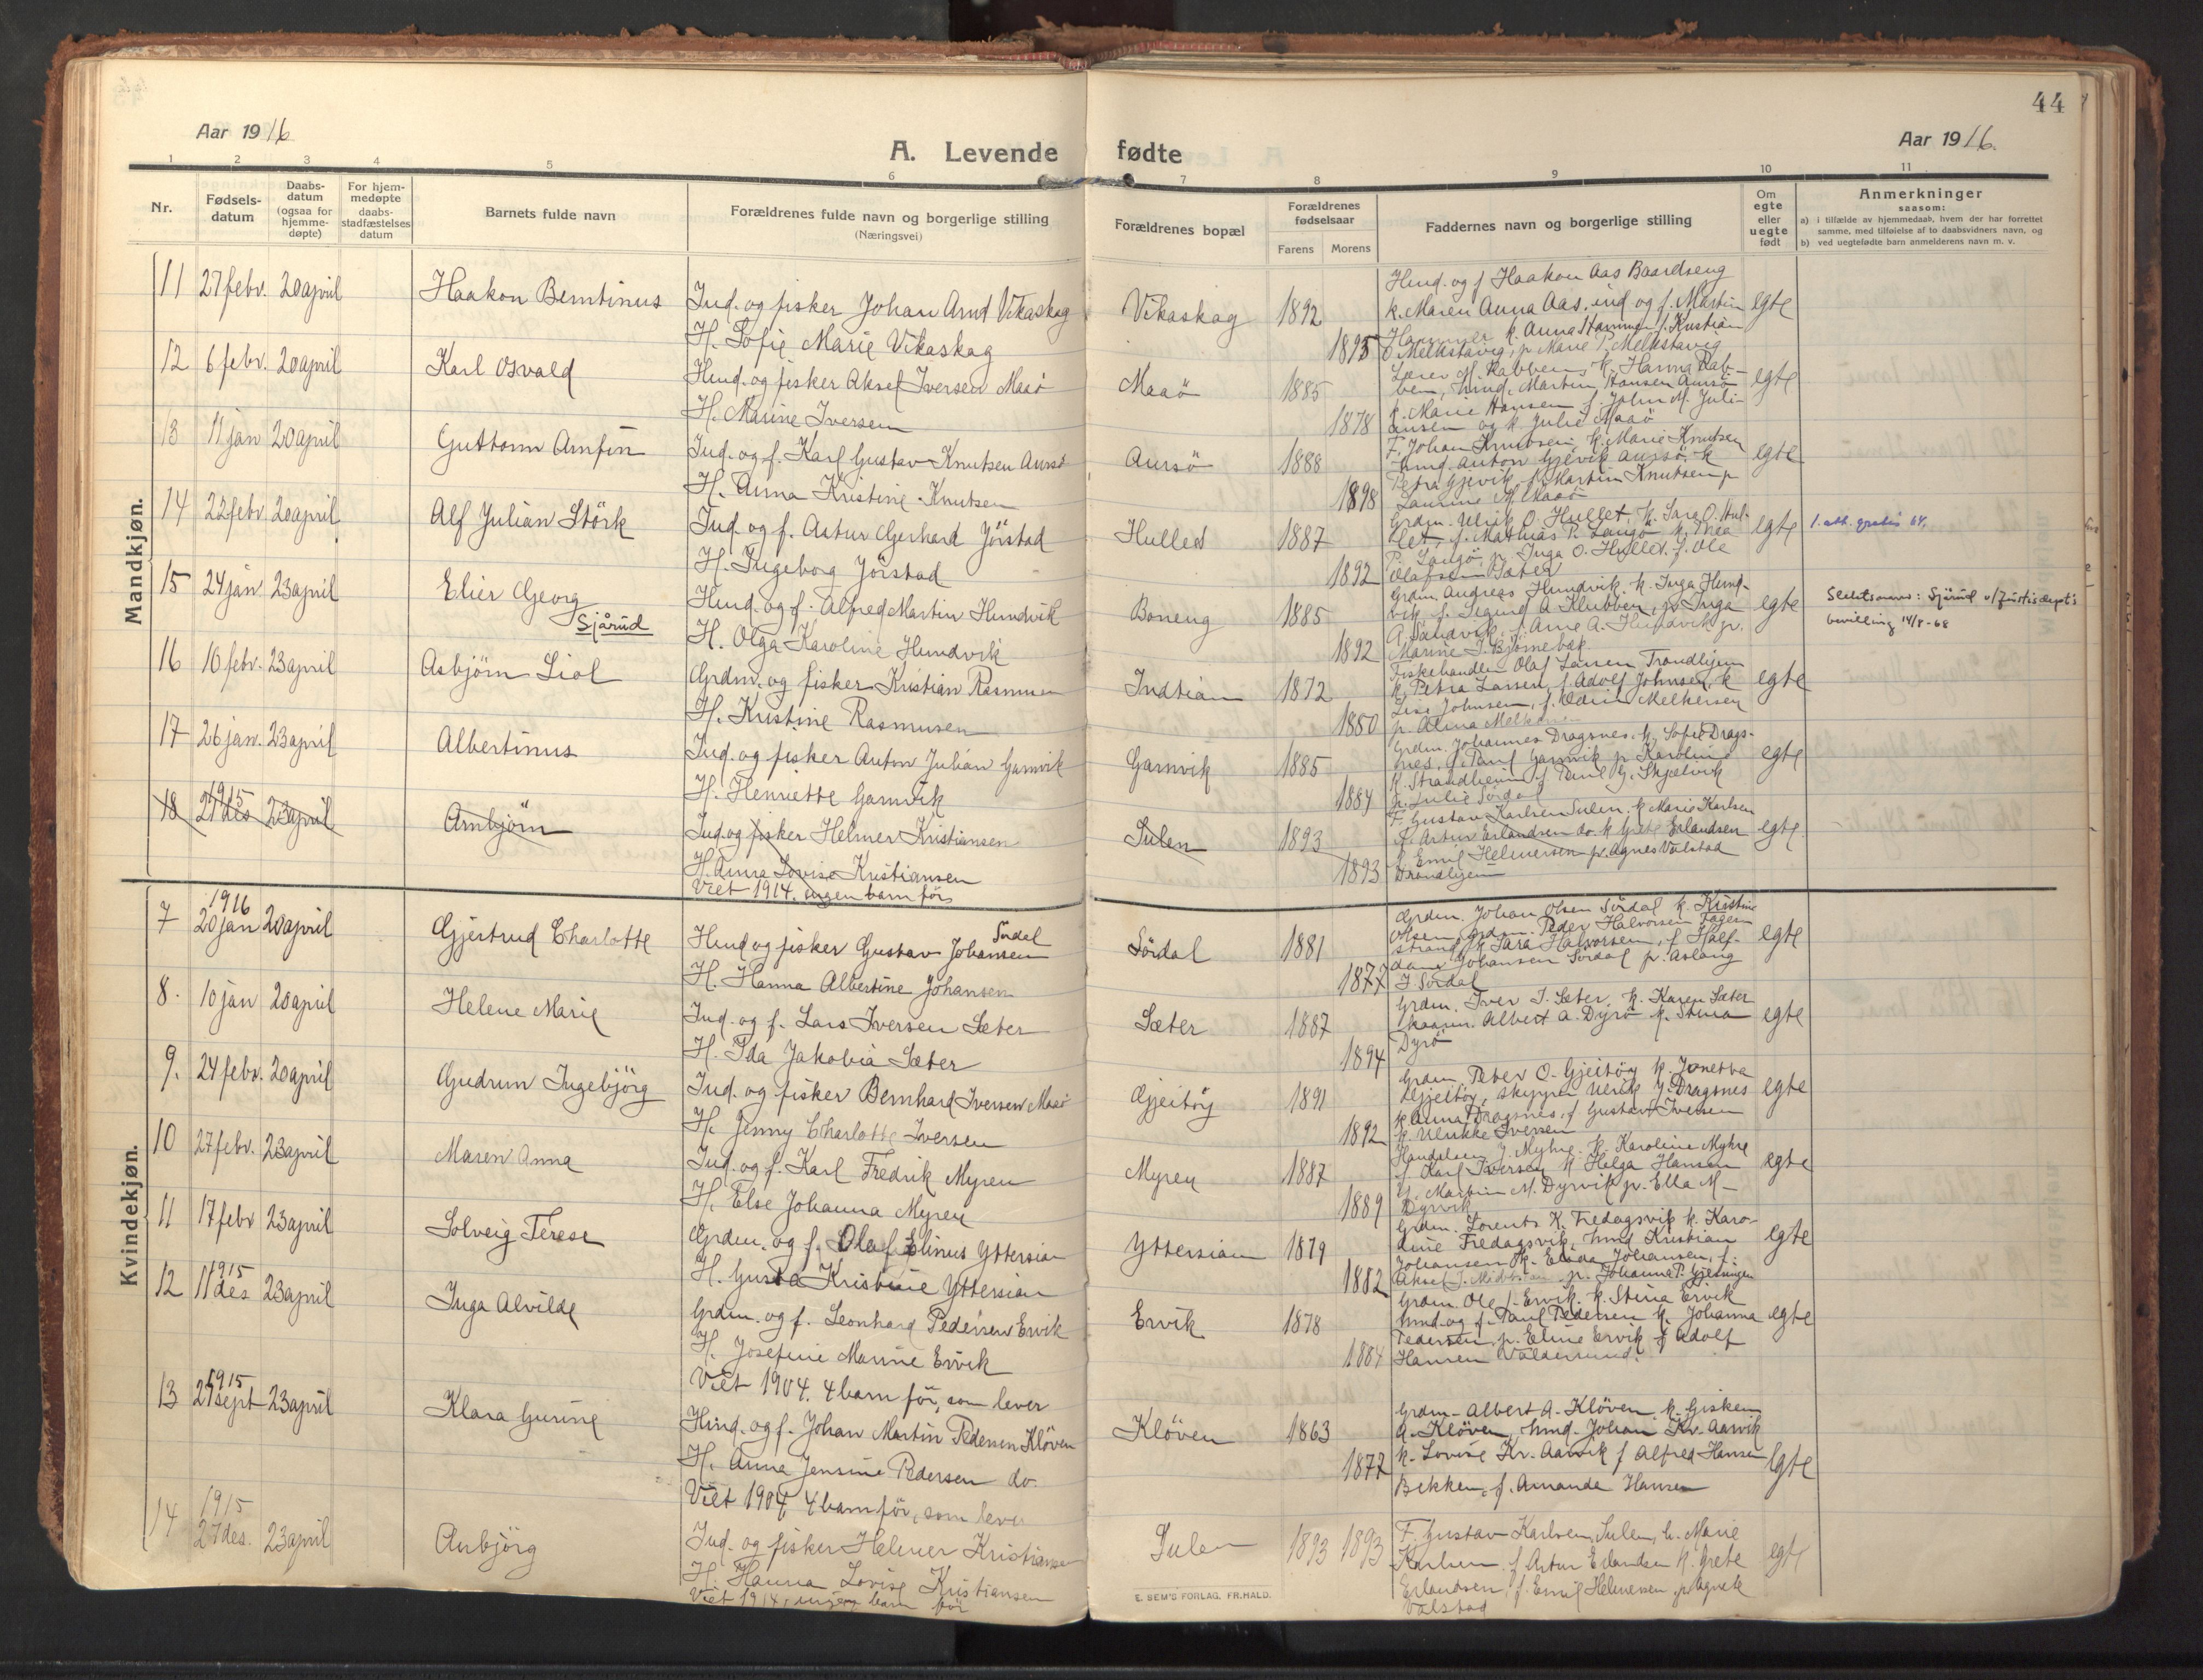 44
Aar 1916
A. Levende fødte
Aar 1916.
1 2 3 4 5 6 7 8 9 10 11
Nr.
Fødsels-
datum
Daabs-
datum
(ogsaa for
hjemme-
døpte)
For hjem-
medøpte
daabs-
stadfæstelses
datum
Barnets fulde navn
Forældrenes fulde navn og borgerlige stilling
(Næringsvei)
Forældrenes bopæl
Forældrenes
fødselsaar
Farens Morens
Faddernes navn og borgerlige stilling
Om
egte
eller
uegte
født
Anmerkninger
saasom:
a) i tilfælde av hjemmedaab, hvem der har forrettet
samme, med tilføielse af to daabsvidners navn, og
b) ved uegtefødte barn anmelderens navn m. v.
Mandkjøn.
11 27 febr. 20 april Haakon Berntinus
Ind. og fisker Johan Arnt Vikaskag
H. Sofie Marie Vikaskag
Vikaskag 1892 1895
Hmd. og f Haakon Aas Baardseng
k. Maren Anna Aas, ind og f. Martin
Hammer k. Anna Hammer f. Kristian
O Melkstavig, p Marie P. Melkstavig
egte
12 6 febr. 20 april Karl Osvald
Hmd. og fisker Aksel Iversen Maaö
H. Marine Iversen
Maaö 1885 1878
Lærer M. Rabben, k. Hanna Rab-
ben, hmd. Martin Hansen Aursö
k. Marie Hansen f. John M. Juli-
ansen og k Julie Maaö
egte
13 11 jan 20 april Guttorm Arnfin
Ind. og f. Karl Gustav Knutsen Aursö
H. Anna Kristine Knutsen
Aursö 1888 1898
F. Johan Knutsen, k. Marie Knutsen
hmd. Anton Gjevik Aursö k
Petra Gjevik f. Martin Knutsen p
Laurine M. Maaö
egte
14 22 febr. 20 april Alf Julian Störk
Ind. og f. Artur Gerhard Jörstad
H. Ingeborg Jörstad
Hulled 1887 1892
Grdm. Ulrik O. Hullet, k. Sara O. Hul-
let, f. Mathias P. Langö k. Thea
P. Langö, p. Inga O. Hullet. f. Ole
Olafsen Sæter
egte
1. att. gratis 64.
15 24 jan 23 april Elier Georg
Sjårud
Hmd. og f. Alfred Martin Hundvik
H. Olga Karoline Hundvik
Boneng 1885 1892
Grdm. Andreas Hundvik. k. Inga Hund-
vik, f. Sigurd A Klubben, p. Inga
A. Sandvik, f. Arne A. Hundvik p.
Marine J. Bjørnebak
egte
Slektsnavn: Sjårud v/Justisdept's
bevilling 14/8-68
16 10 febr. 23 april Asbjörn Liol
Grdm. og fisker Kristian Rasmusen
H. Kristine Rasmusen
Indtian 1872 1880
Fiskehandler Olaf Larsen Trondhjem
k. Petra Larsen, f. Adolf Johnsen, k
Lise Johnsen, f. Odin Melkersen
p. Alma
egte
17 26 jan. 23 april Albertinus
Ind. og fisker Anton Julian Garnvik
H. Henriette Garnvik
Garnvik 1885 1884
Grdm. Johannes Dragsnes, k. Sofie Drags-
nes, f. Paul Garnvik p Karoline
K. Strandheim f Paul G. Skjelvik
p. Julie Sördal
egte
18 1915 27 des 23 april Arnbjörn
Ind og fisker Helmer Kristiansen
H. Anna Lovise Kristiansen
Viet 1914. ingen barn för
Sulen 1893 1893
F. Gustav Karlsen Sulen, k Marie Karlsen
f. Artur Erlandsen do. k Grete Erlandsen
f. Emil Helmersen p. Agnes Valstad
Trondhjem
egte.
Kvindekjøn.
7 1916 20 jan 20 april Gjertrud Charlotte
Sördal
Hmd og fisker Gustav Johansen
H. Hanna Albertine Johansen
Sördal 1881 1877
Grdm. Johan Olsen Sördal k. Kristine
Olsen, grdm. Peder Halvorsen Fagen
strand, k Sara Halvorsen, f Half-
dan Johansen Sördal p. Aslaug
J Sördal
egte
8. 10 jan 20 april Helene Marie
Ind. og f. Lars Iversen Sæter
H. Ida Jakobia Sæter
Sæter 1887 1894
Grdm. Iver J. Sæter, k. Karen Sæter
kaarm. Albert A. Dyrö k. Stina
Dyrö
egte
9. 24 febr. 20 april Gudrun Ingebjörg
Ind. og fisker Bernhard Iversen Maaö
H. Jenny Charlotte Iversen
Gjeitöy 1891 1892
Grdm Peter O. Gjeitöy k. Jonetta
Gjeitöy, skipper Ulrik J. Dragsnes
k Anna Dragsnes, f Gustav Iversen
k. Ulrikke Iversen
egte
10 27 febr. 23 april Maren Anna
Ind. og f. Karl Fredrik Myren
H. Else Johanna Myren
Myren 1887 1889
Handelsm. J. Myhre. k Karoline Myhre
f Karl Iversen k Helga Hansen
U. Martin M. Dyrvik p. Ella M-
Dyrvik
egte
11 17 febr 23 april Solveig Terese
Grdm. og f. Olaf Elinus Yttersian
H. Gusta Kristine Yttersian
Yttersian 1879 1882
Grdm. Lorents K. Fredagsvik k. Karo-
line Fredagsvik, hmd Kristian
Johansen k. Elida Johansen, f.
Aksel J. p. Johanna P. Gjessingen
egte
12 1915 11 des 23 april Inga Alvilde
Grdm. og f. Leonhard Pedersen Ervik
H. Josefine Marine Ervik
Viet 1904. 4 barn för, som lever
Ervik 1878 1884
Grdm. Ole J. Ervik. k. Stina Ervik
hmd. og f. Paul Pedersen k. Johanna
Pedersen, p. Eline Ervik f Adolf
Hansen Valdersund.
egte
13 1915 27 sept 23 april Klara Gurine
Hmd. og f. Johan Martin Pedersen Klöven
H. Anna Jensine Pedersen do.
Viet 1904, 4 barn för, som lever
Klöven 1863 1877
Grdm. Albert A. Klöven, k. Gisken
A. Klöven, hmd. Johan Kr. Aarvik
k. Lovise Kr. Aarvik f Alfred Hansen
Bekken, f. Amanda Hansen
egte
14 1915 27 des. 23 april Anbjörg
Ind. og fisker Helmer Kristiansen
H. Hanna Lovise Kristiansen
Viet 1914, ingen barn för
Sulen 1893 1893
F. Gustav Karlsen, Sulen, k. Marie
Karlsen. f. Artur Erlandsen k. Grete
Erlandsen, f. Emil Helmersen, p Agnete
Valstad
egte
E. SEM'S FORLAG, FR.HALD.